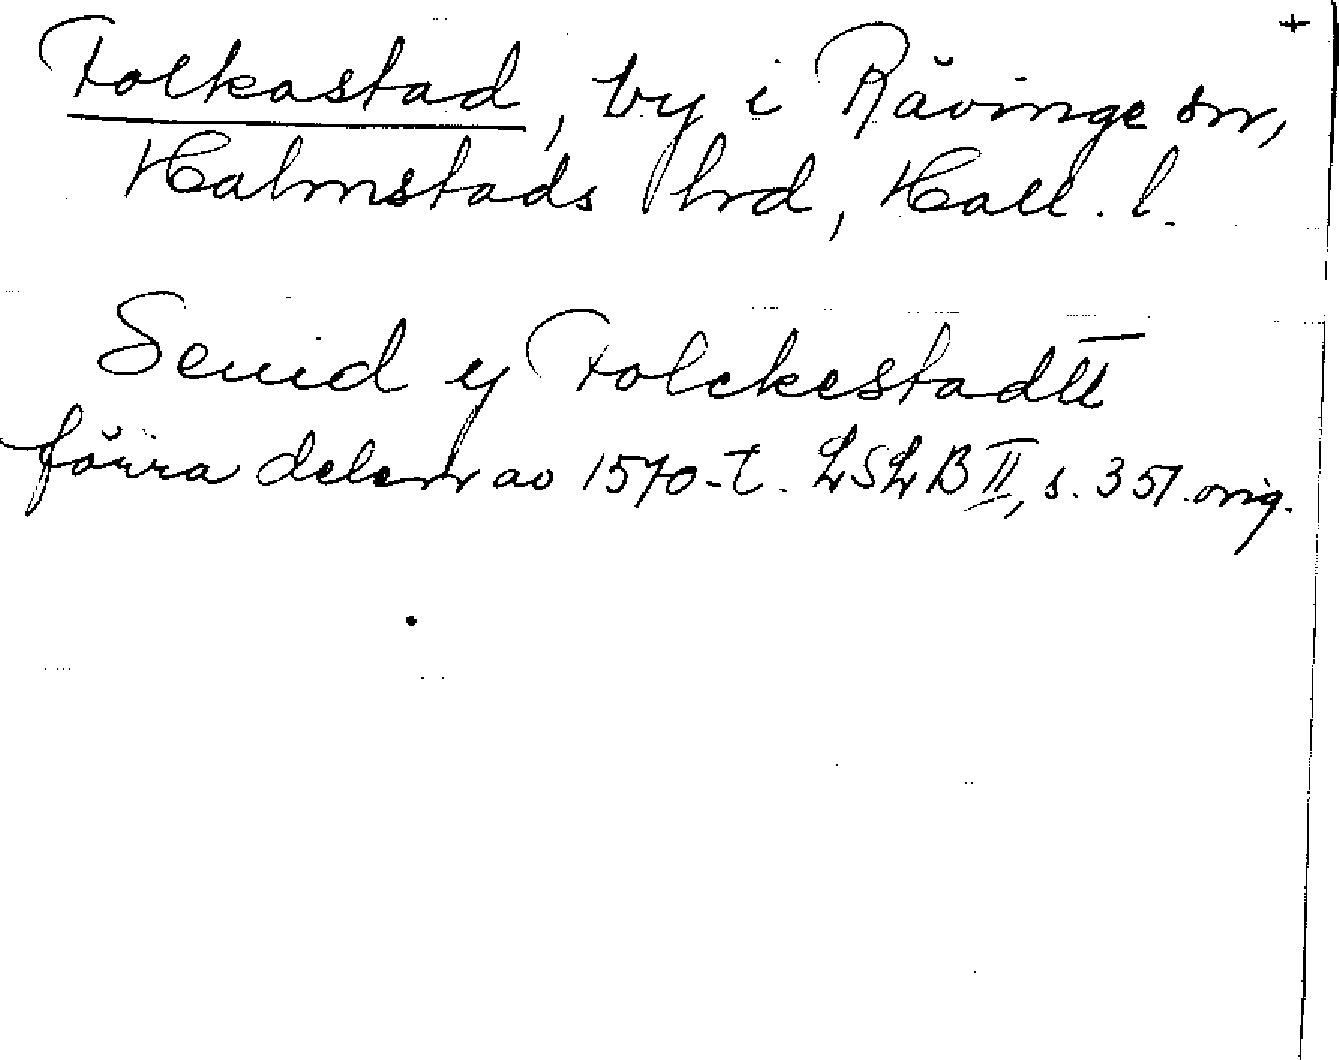 +
Folkastad, by i Råvinge sn,
Halmstads hrd, Hall. l.
Seuid y Folckestadtt
förra delen av 1570-t. LSLB II, s. 357. orig.